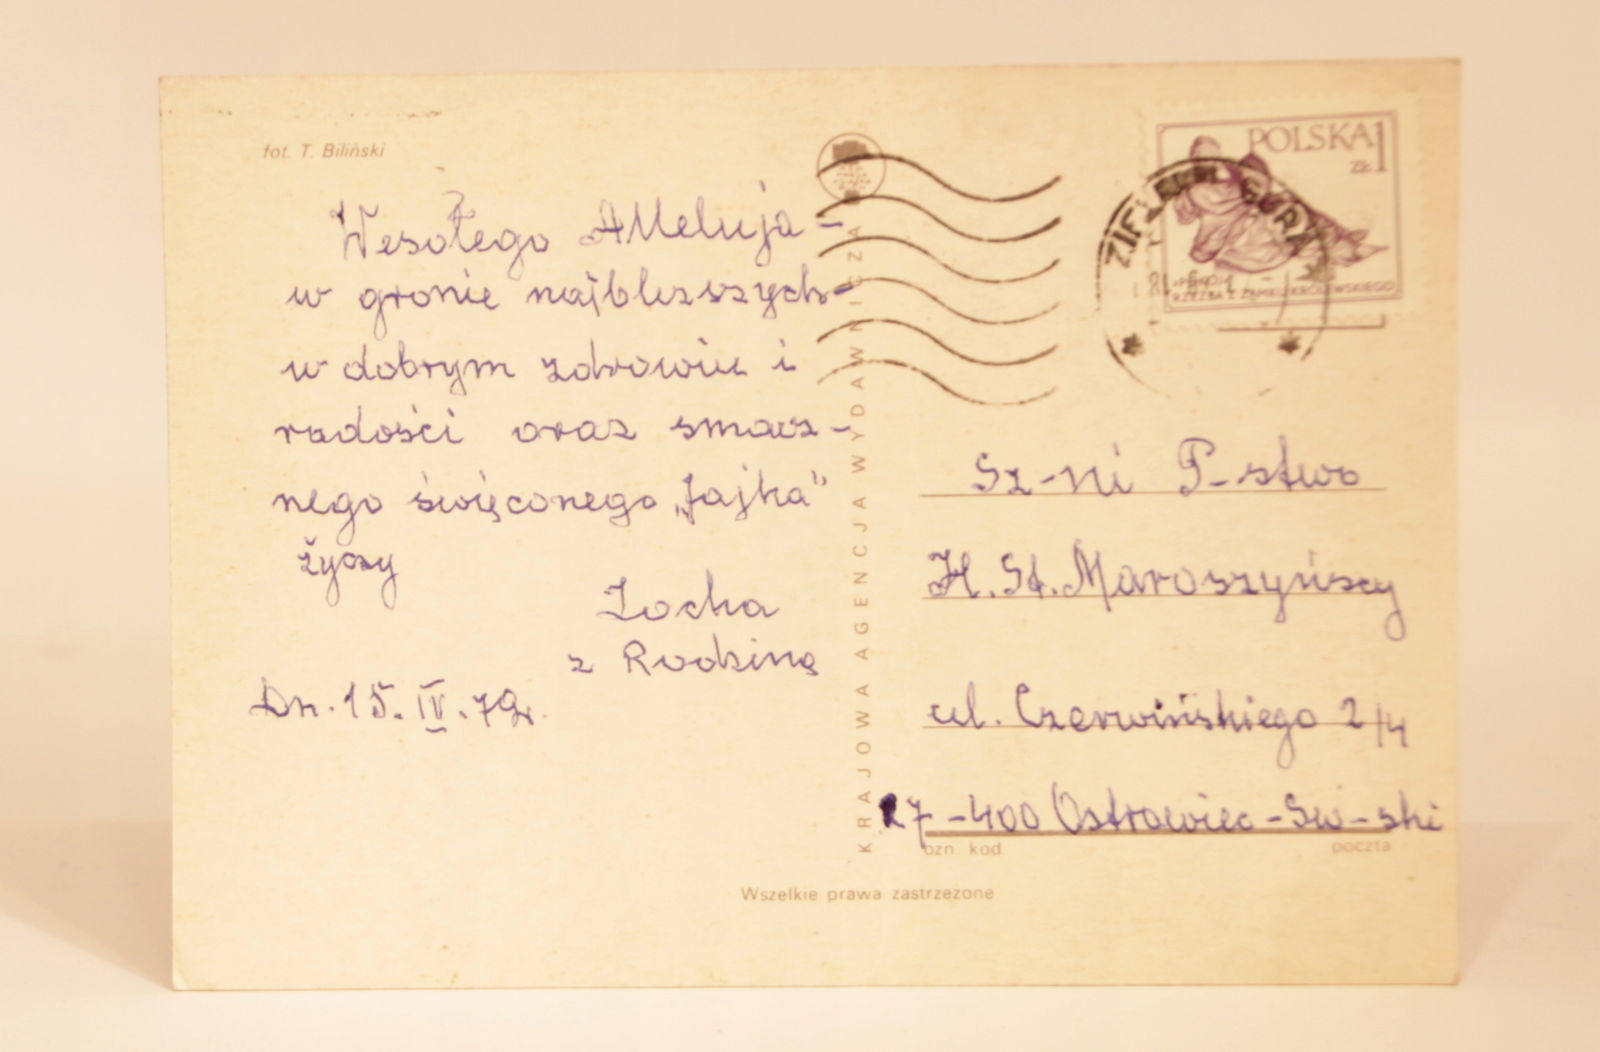 fot. T. Biliński
Wesołego Alleluja -
w gronie najbliższych -
w dobrym zdrowiu i
radości oraz smacz-
nego święconego „Jajka"
życzy
Zocha
z Rodziną
Dn. 15. IV. 79r.
KRAJOWA AGENCJA WYDAWNICZA
POLSKA 1
ZŁ
RZEŹBA Z ZAMKU KRÓLEWSKIEGO
ZIELONA GÓRA
Sz-ni P-stwo
H. St. Maroszyńscy
ul. Czerwińskiego 2/4
27-400 Ostrowiec-Św-ski
ozn. kod.
poczta
Wszelkie prawa zastrzeżone